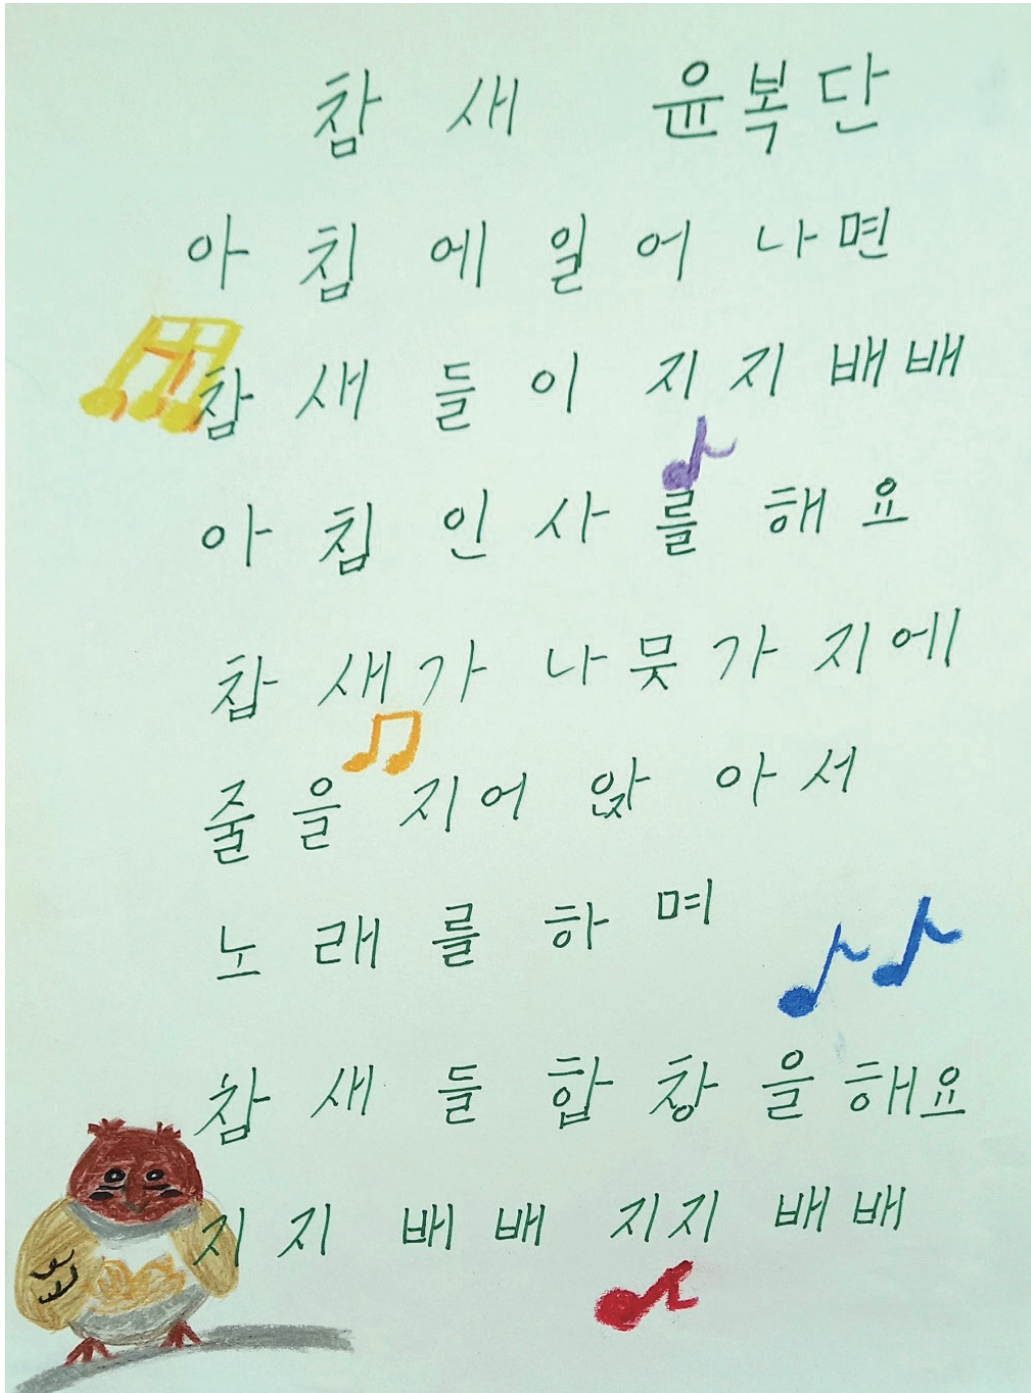 참새 윤복단
아침에 일어나면
참새들이 지지배배
아침인사를 해요
참새가 나뭇가지에
줄을 지어 앉아서
노래를 하며
참새들 합창을 해요
지지배배 지지배배